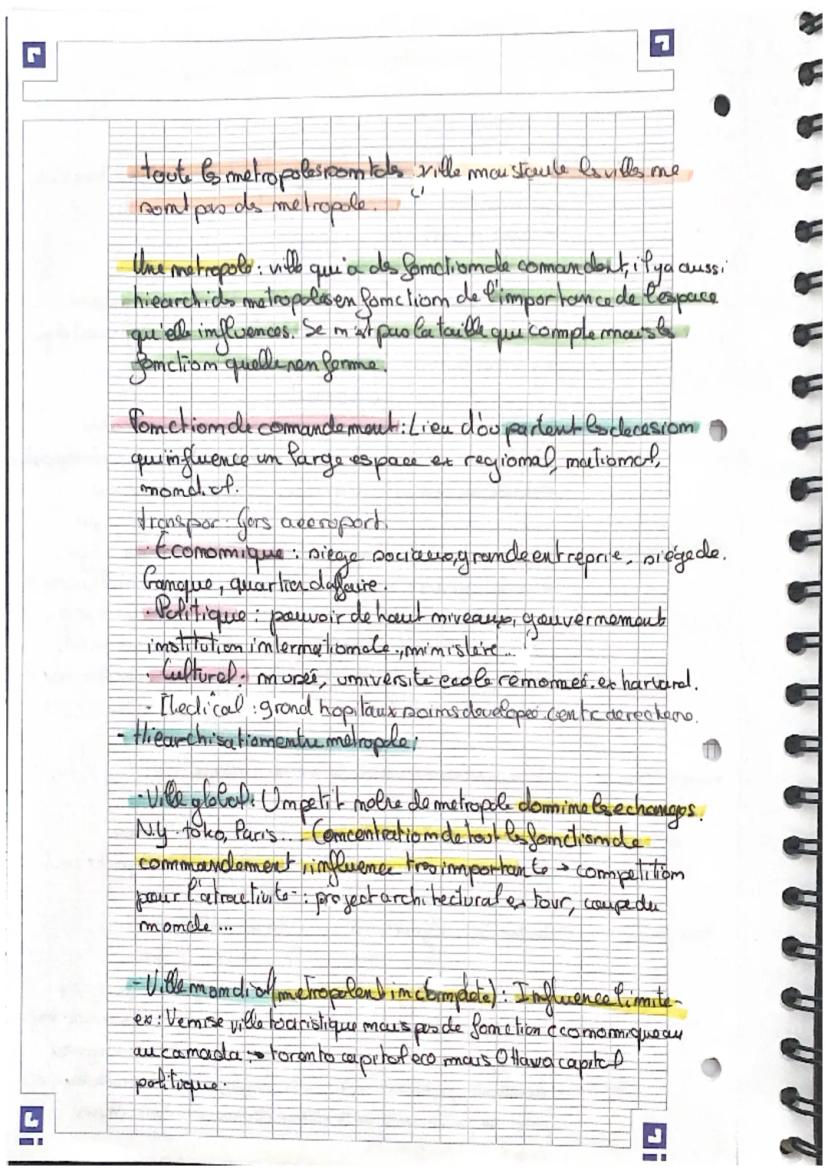 toute les metropoles sont des ville mais toute les villes ne
sont pas des metropole.
Une metropole : ville qui a des fonction de comandent, il y a aussi
hiearchi ds metropoles en fonction de l'importance de l'espace
qu'elle influences. Se n'ait pas la taille qui compte mais les
fonction quelle renferme.
Fonction de comandement : Lieu d'où partent les decesion
qui influence un large espace ex regional, national,
mondial.
transpor : gars aeeroport.
- Économique : siège sociaux, grande entreprie, siège de
banque, quartier d'affaire.
- Politique : pouvoir de haut niveaux, gouvernement
institution internationale, ministère...
- Culturel : museé, université ecole renomeé. ex harvard.
- Medical : grand hopitaux soins developeé centre de rechere.
- Hiearchisation entre métropole :
- Ville global : Un petit nobre de metropole domine les echanges.
N.Y. toko, Paris... Concentration de tout les fonction de
commandement, influence tres importante → competition
pour l'atractivité : project architectural ex tour, coupe du
monde ...
- Ville mondial (metropolend incomplete) : Influence limite
ex : Venise ville touristique mais pas de fonction economique au
au canada → toronto capital eco mais Ottawa capitel
politique.